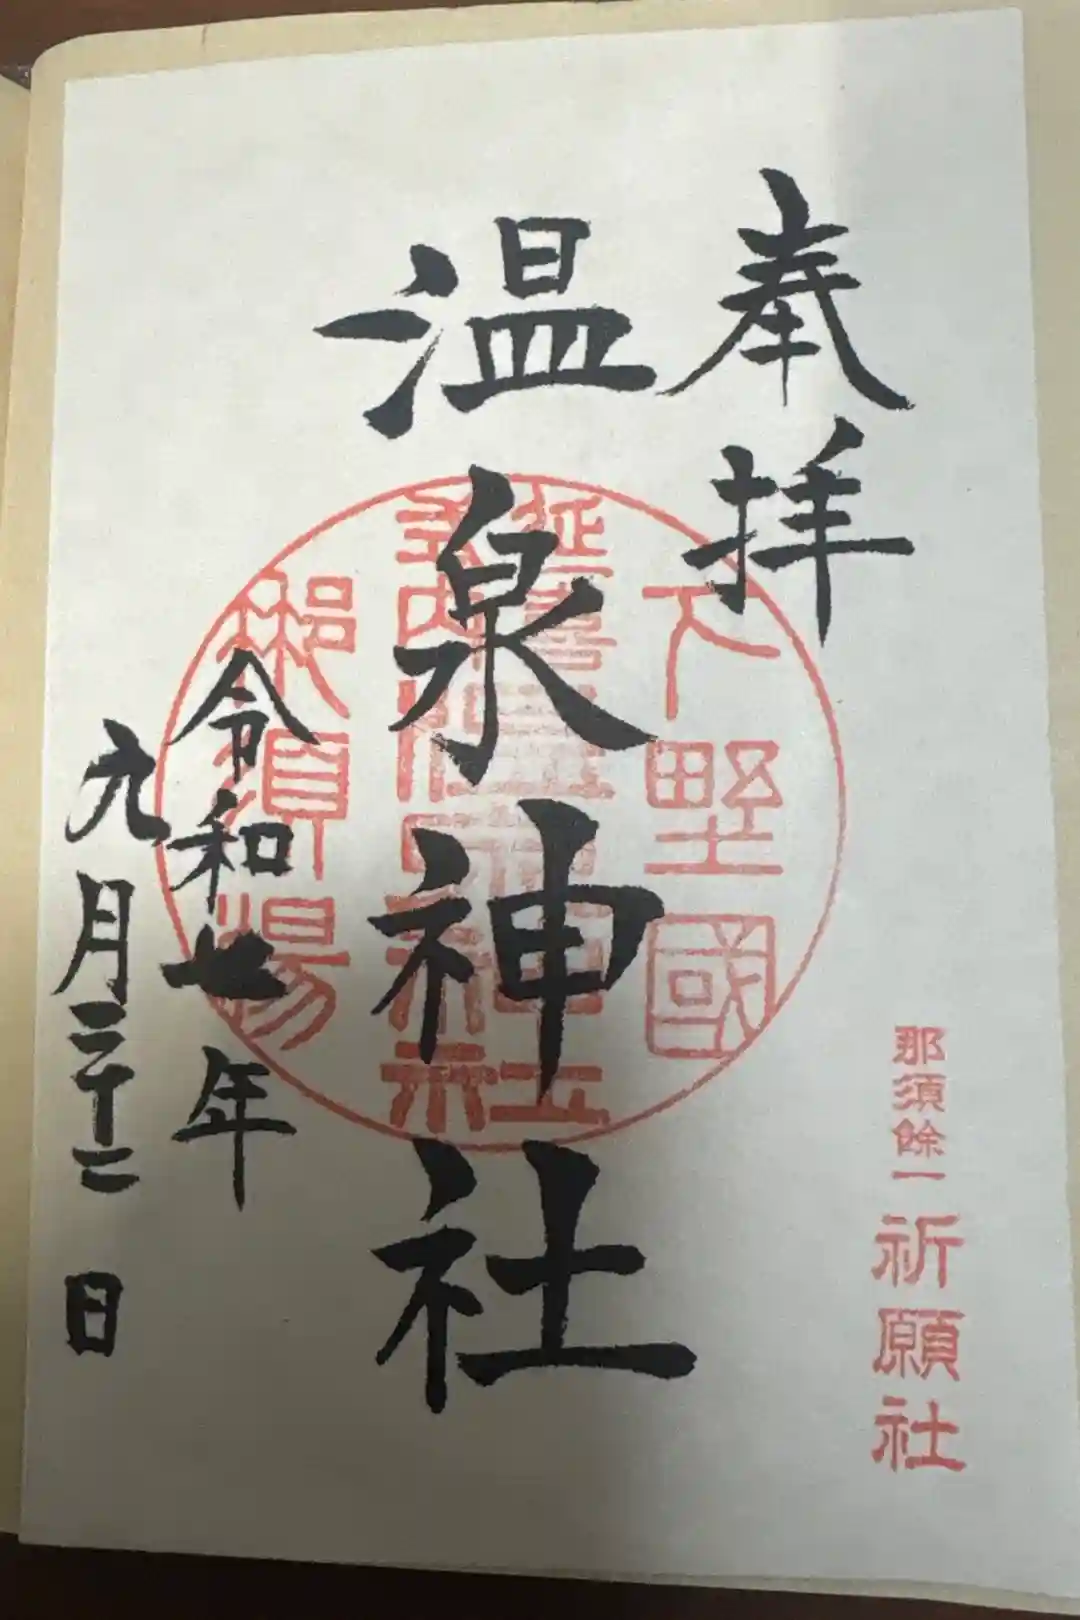 奉拝
那須餘一
祈願社
温泉神社
下野國
延喜
式内
温泉神社
那須湯
令和七年
九月二十二日